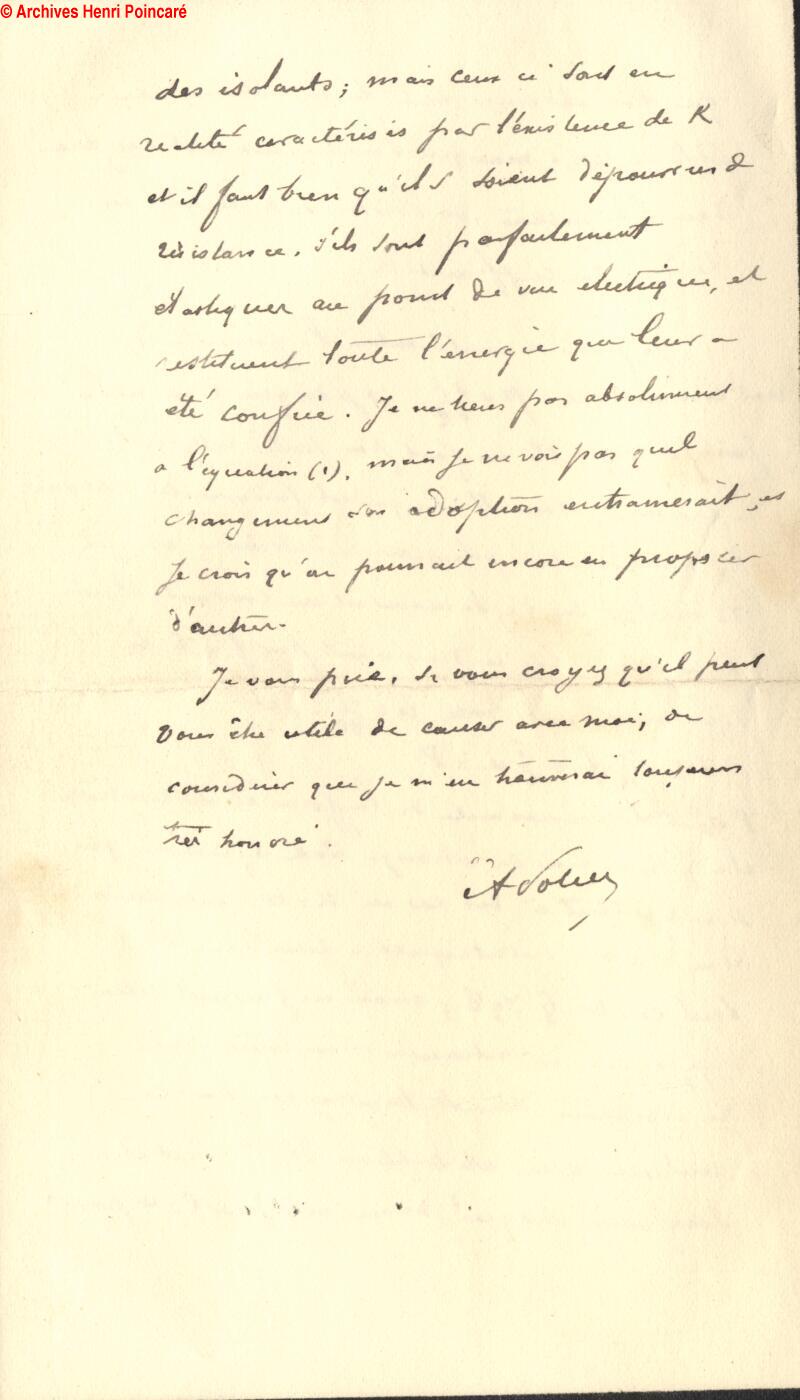 © Archives Henri Poincaré
des isolants ; mais ceux ci sont en
réalité caractérisés par l'existence de K
et il faut bien qu'ils soient dépourvus de
résistance, s'ils sont parfaitement
élastiques au point de vue électrique, et
restituent toute l'énergie qui leur a
été confiée. Je ne tiens pas absolument
a l'équation (1), mais je ne vois pas quel
changement son adoption entrainerait, et
je crois qu'on pourrait encore en proposer
d'autres.
Je vous prie, si vous croyez qu'il peut
vous être utile de causer avec moi, de
considérer que je m'en trouverai toujours
très honoré.
A Potier